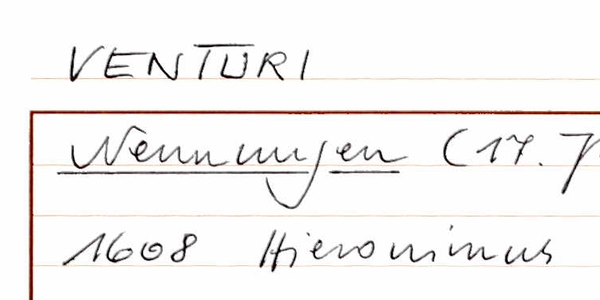 VENTURI
Nennungen (17. J
1608 Hieronimus